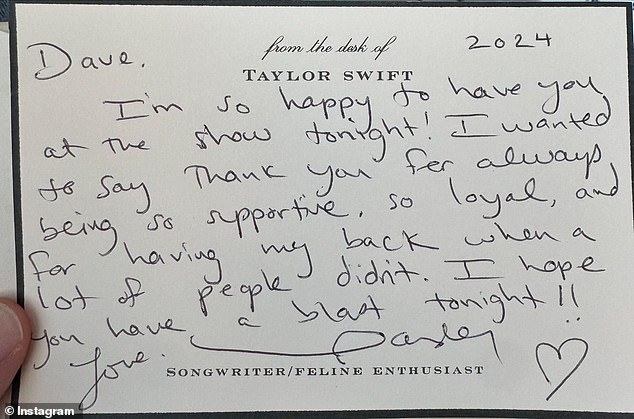 from the desk of
2024
Dave.
TAYLOR SWIFT
I'm so happy to have you
at the show tonight! I wanted
to say Thank you for always
being so supportive, so loyal, and
for having my back when a
lot of people didn't. I hope
you have a blast tonight!!
Love.
SONGWRITER/FELINE ENTHUSIAST
© Instagram